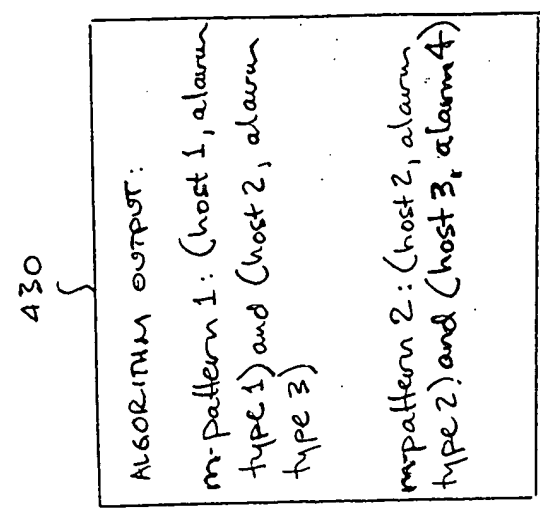 430
ALGORITHM OUTPUT:
m-pattern 1: (host 1, alarm
type 1) and (host 2, alarm
type 3)
m-pattern 2: (host 2, alarm
type 2) and (host 3, alarm 4)